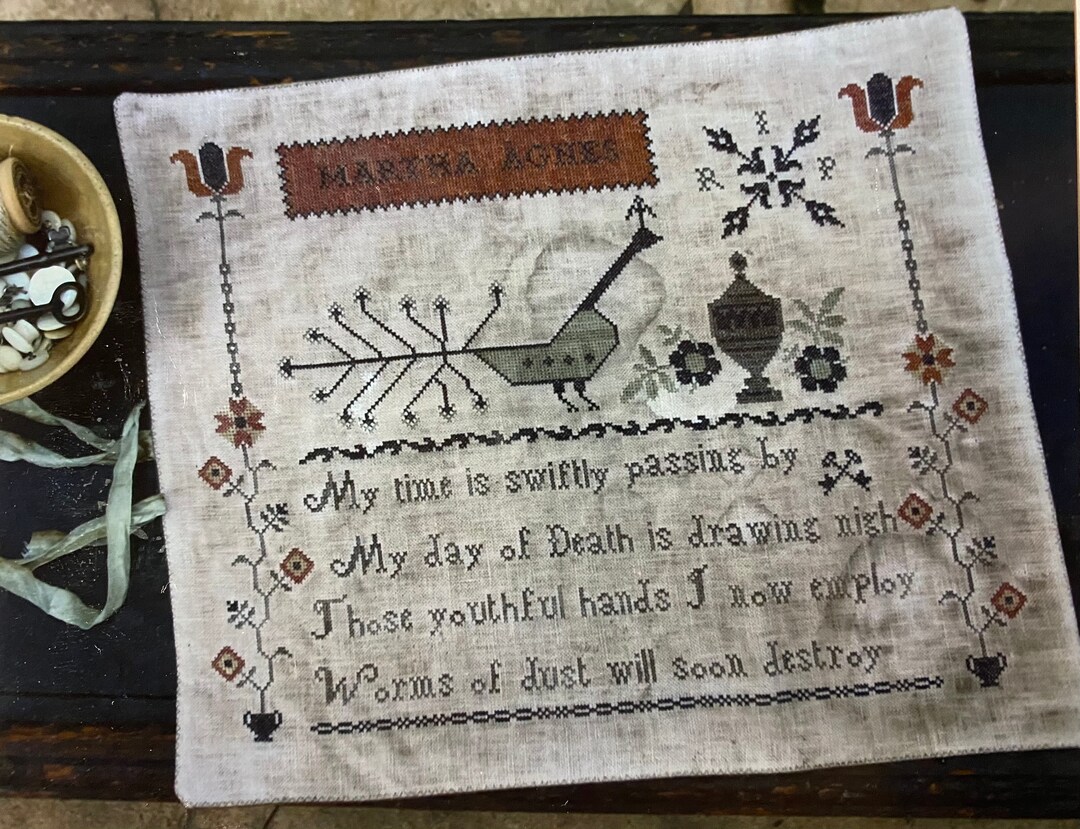 MARTHA AGNES
R I P
My time is swiftly passing by
My day of Death is drawing nigh
Those youthful hands I now employ
Worms of dust will soon destroy